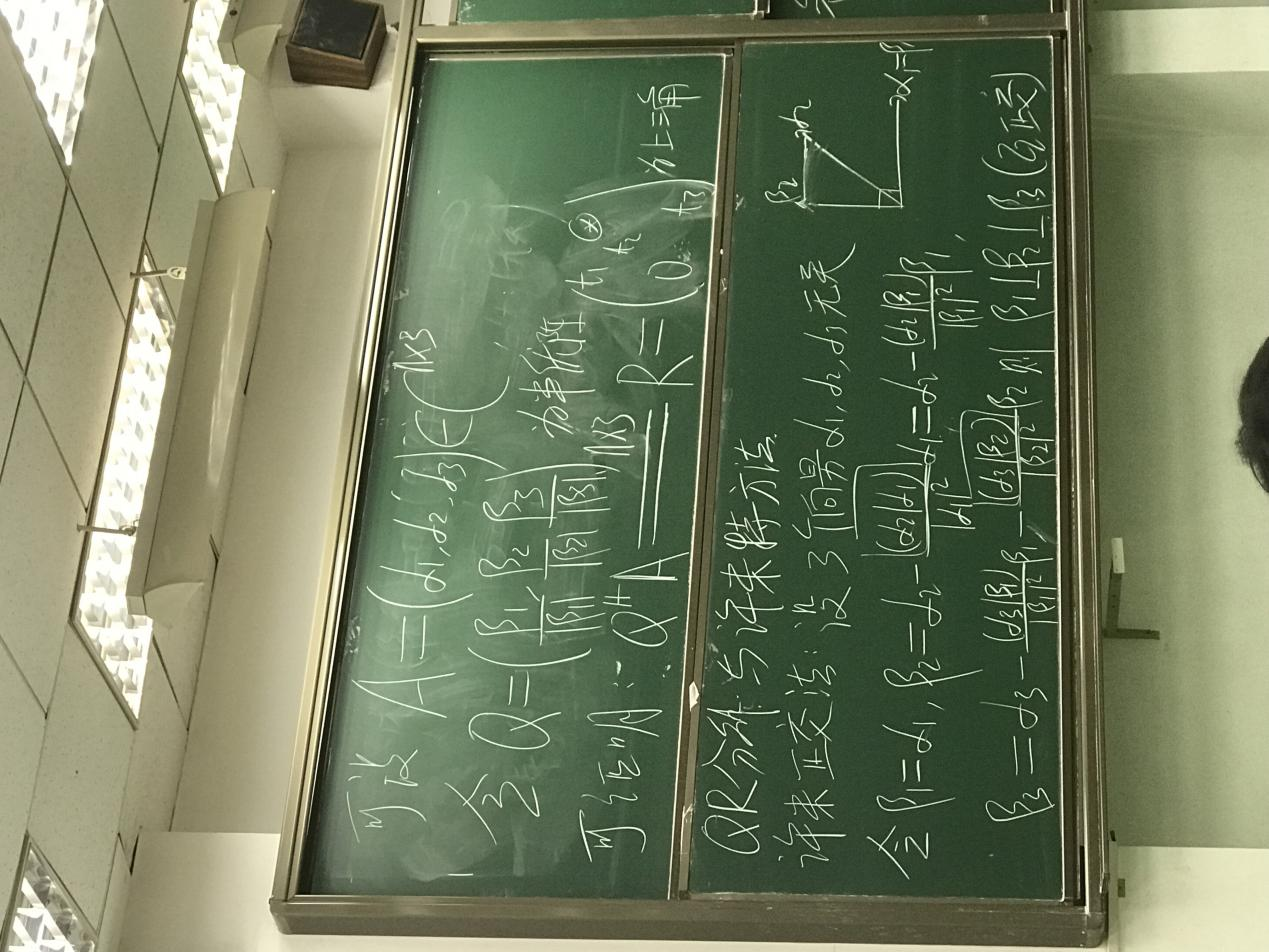 可设 A=(α1, α2, α3)∈C^{n×3}
令 Q=(β1/|β1|, β2/|β2|, β3/|β3|)_{n×3} 为半优阵
可证明: Q^H A = R = (t1 t2 t3 ⊛ 0) 为上三角
QR分解与许米特方法
许米正交法: 设3个向量 α1, α2, α3 无关
令 β1=α1, β2=α2-(α2|α1)/|α1|² α1=α2-(α2|β1)/|β1|² β1,
β3=α3-(α3|β1)/|β1|² β1-(α3|β2)/|β2|² β2 则 β1⊥β2⊥β3 (互正交)
β2
α2
α1=β1